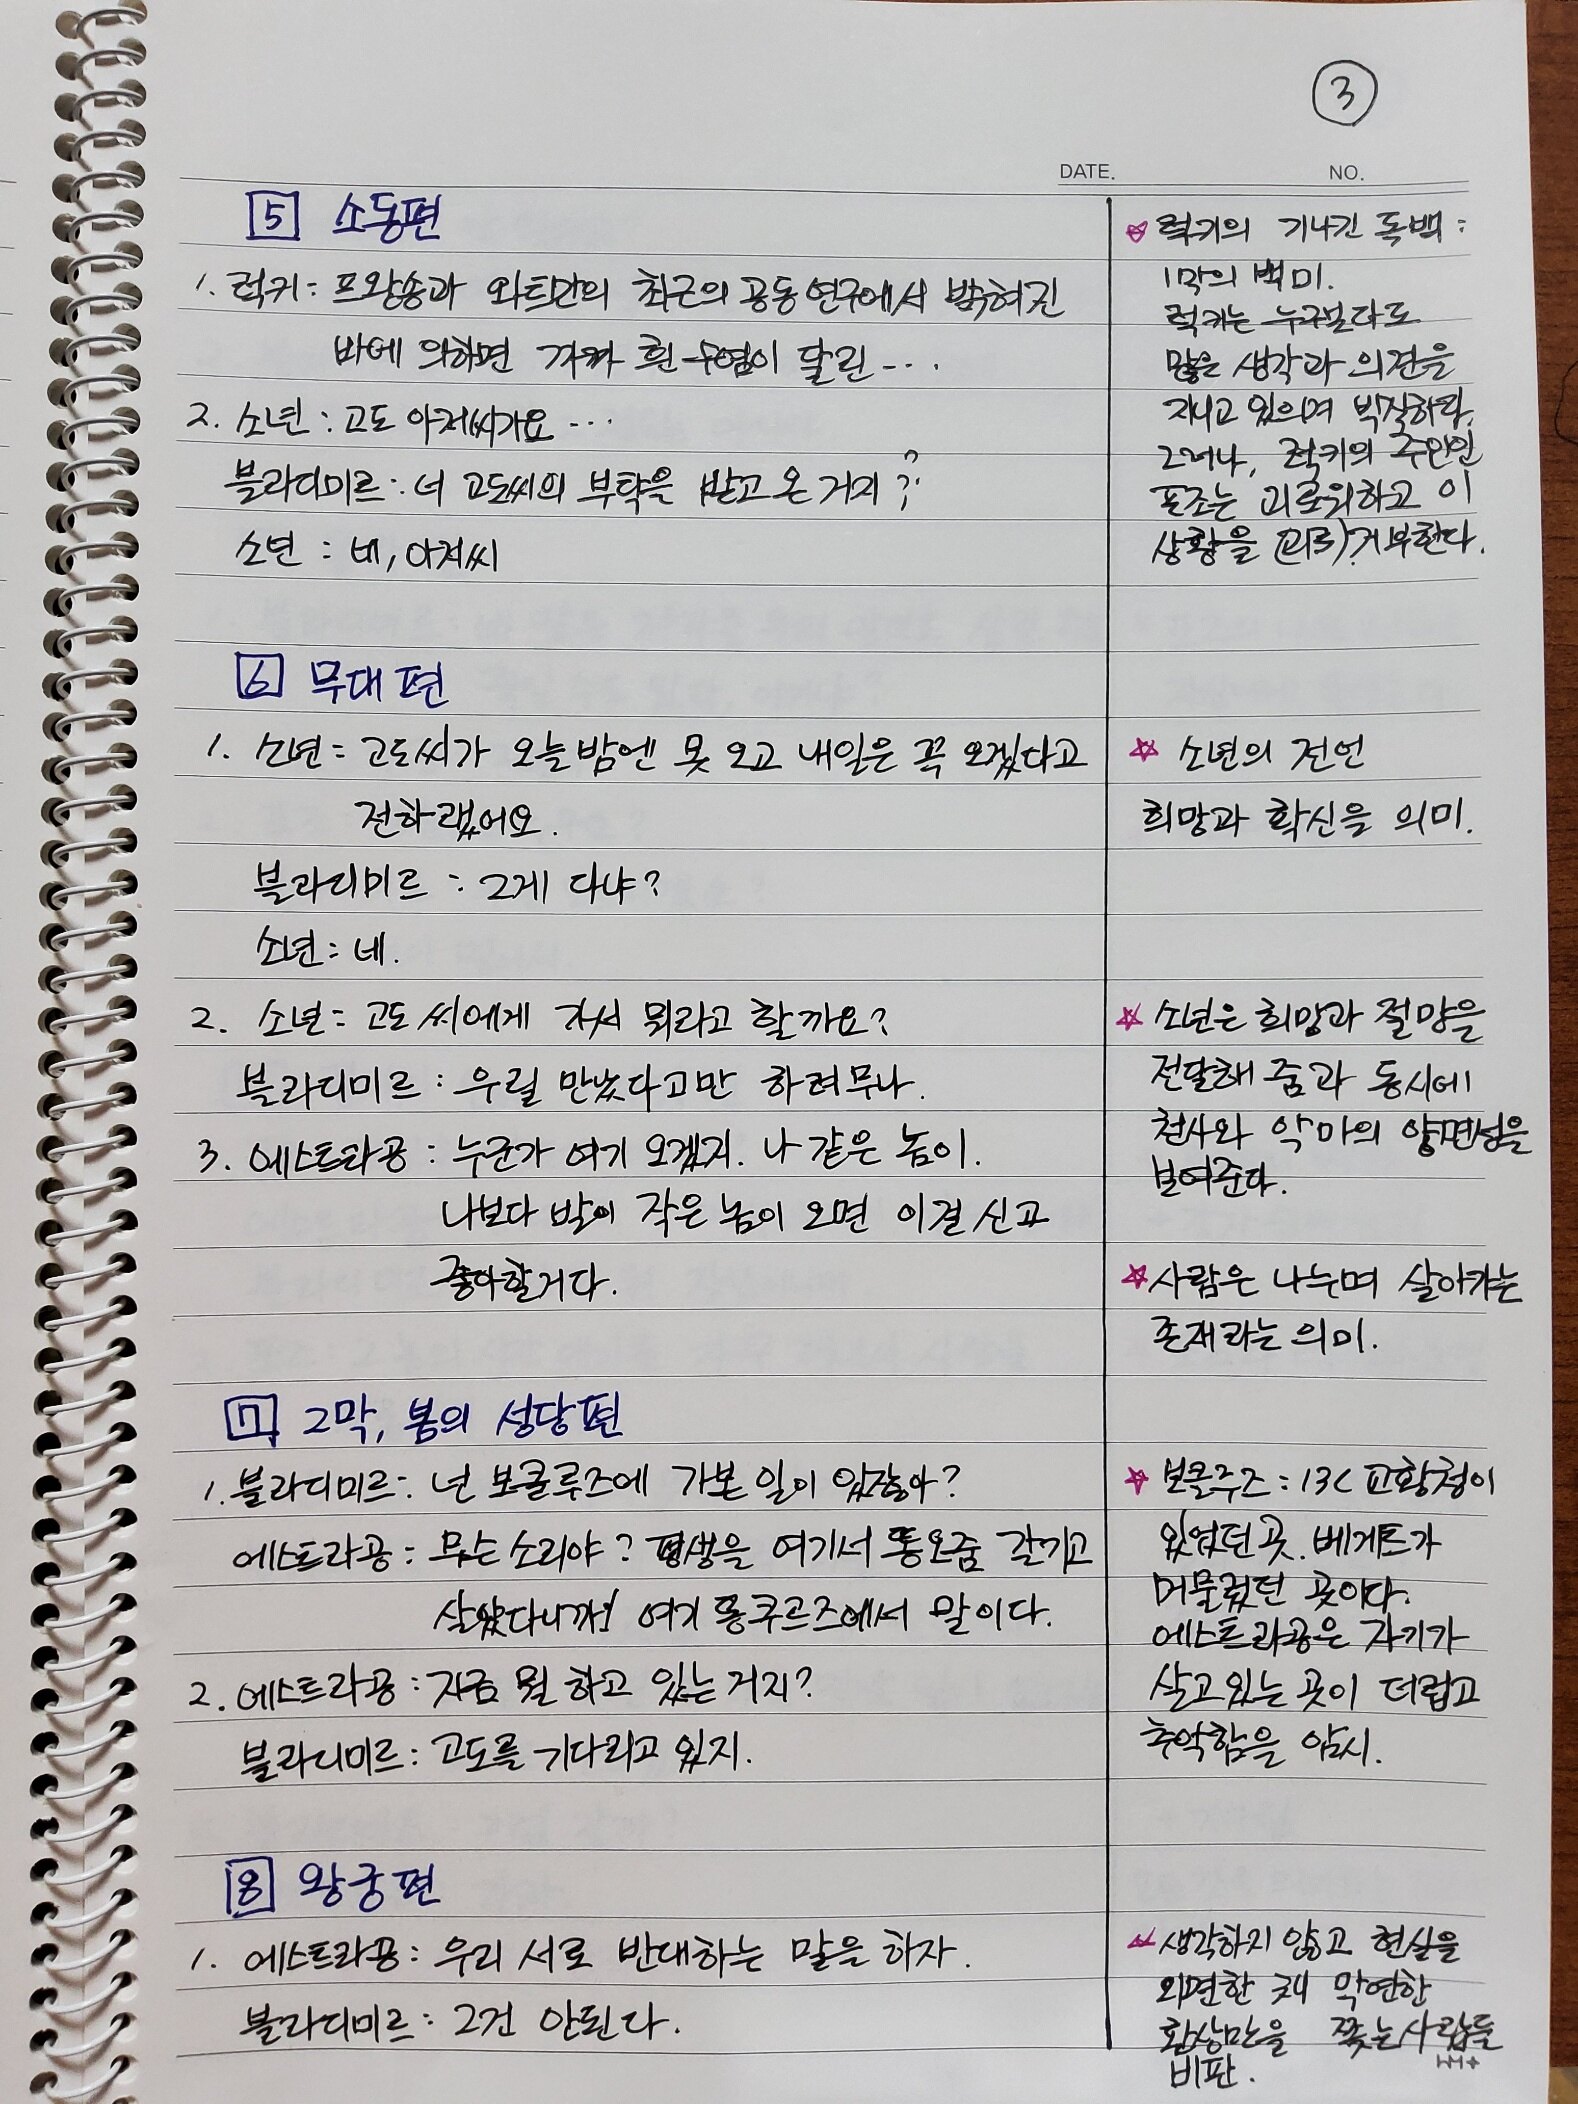 3
DATE. NO.
5 소동편
1. 럭키: 프왕송과 와트만의 최근의 공동 연구에서 밝혀진
바에 의하면 까까 흰 수염이 달린...
2. 소년 : 고도 아저씨가요 ...
블라디미르: 너 고도씨의 부탁을 받고 온 거지?
소년 : 네, 아저씨
☆ 럭키의 기나긴 독백 :
1막의 백미.
럭키는 누구보다도
많은 생각과 의견을
지니고 있으며 박식하다.
그러나, 럭키의 주인인
포조는 괴로워하고 이
상황을 거부한다.
6 무대편
1. 소년: 고도씨가 오늘밤엔 못 오고 내일은 꼭 오겠다고
전하랬어요.
블라디미르 : 그게 다냐?
소년: 네.
☆ 소년의 전언
희망과 확신을 의미.
2. 소년: 고도 씨에게 가서 뭐라고 할까요?
블라디미르 : 우릴 만났다고만 하려무나.
☆ 소년은 희망과 절망을
전달해 줌과 동시에
천사와 악마의 양면성을
보여준다.
3. 에스트라공 : 누군가 여기 오겠지. 나 같은 놈이.
나보다 발이 작은 놈이 오면 이걸 신고
좋아할거다.
☆ 사람은 나누며 살아가는
존재라는 의미.
7 2막, 봄의 성당편
1. 블라디미르: 넌 보클루즈에 가본 일이 있잖아?
에스트라공: 무슨 소리야? 평생을 여기서 똥오줌 갈기고
살았다니까! 여기 똥쿠르즈에서 말이다.
2. 에스트라공 : 지금 뭘 하고 있는 거지?
블라디미르: 고도를 기다리고 있지.
☆ 보클루즈 : 13C 교황청이
있었던 곳. 베게트가
머물렀던 곳이다.
에스트라공은 자기가
살고 있는 곳이 더럽고
추악함을 암시.
8 왕궁편
1. 에스트라공: 우리 서로 반대하는 말을 하자.
블라디미르: 그건 안된다.
생각하지 않고 현실을
외면한 채 막연한
환상만을 쫓는 사람들
비판.